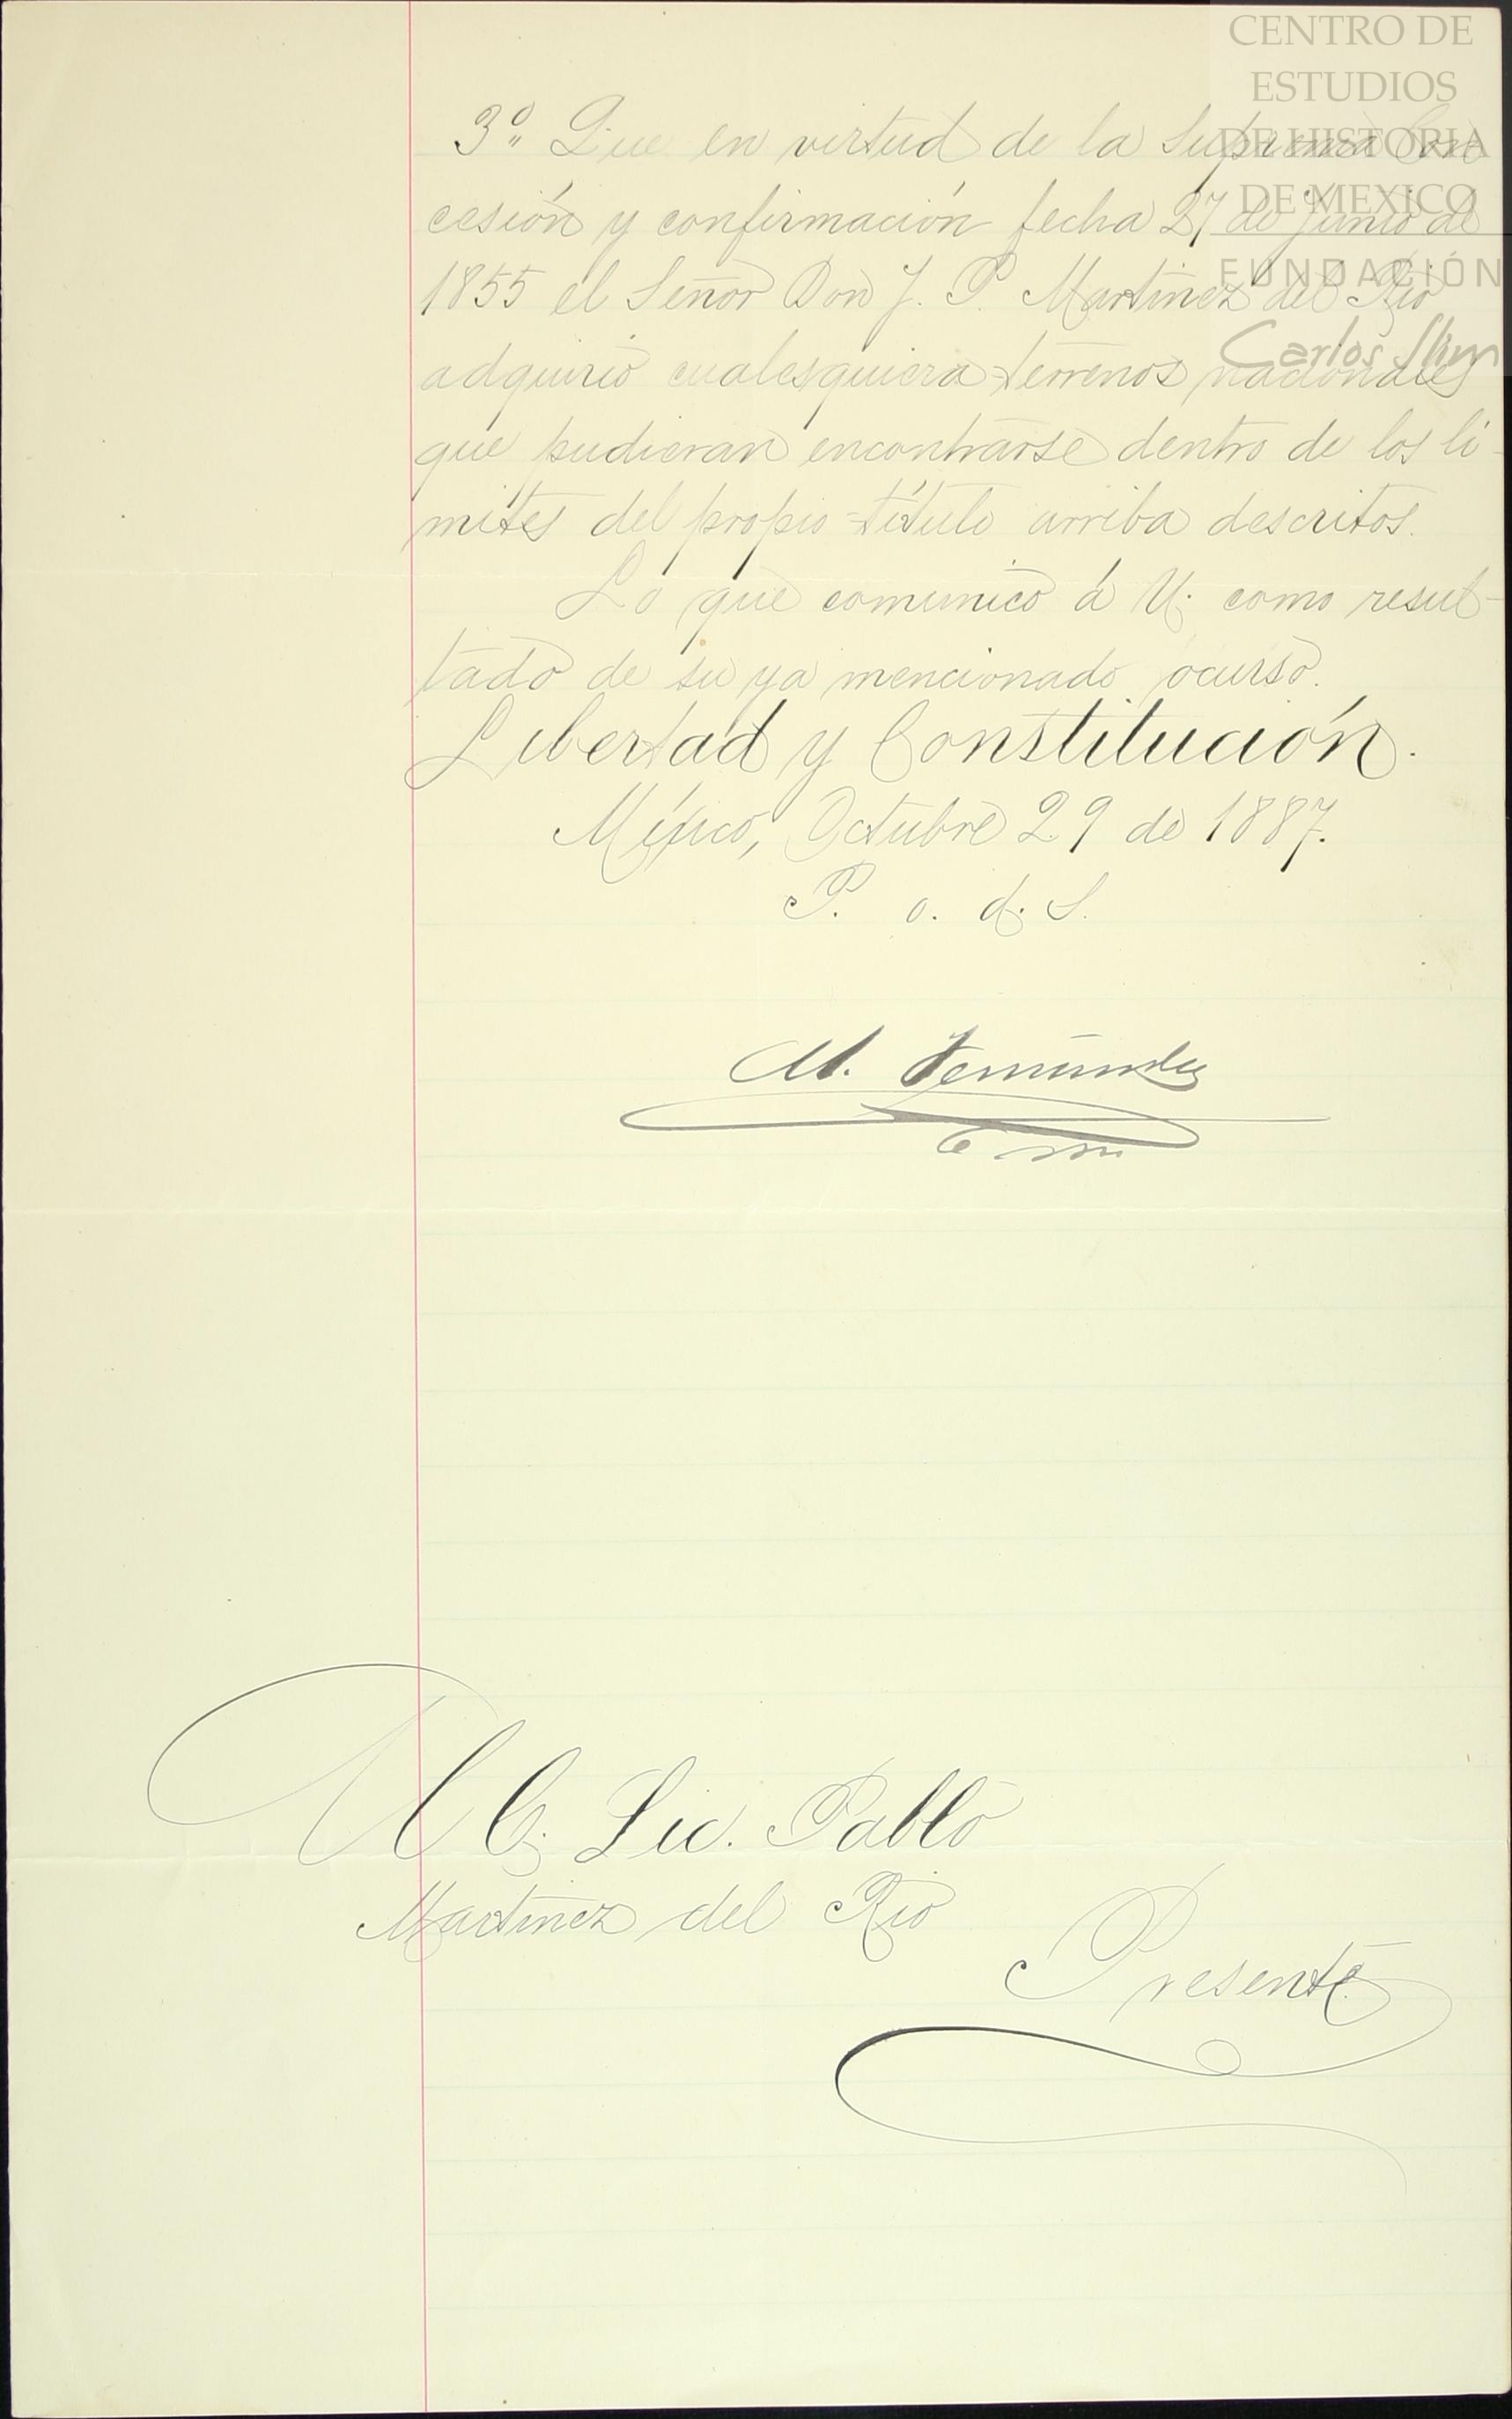 CENTRO DE
ESTUDIOS
DE HISTORIA
DE MEXICO
FUNDACIÓN
Carlos Slim
3º Que en virtud de la Suprema Con
cesión y confirmación fecha 27 de Junio de
1855 el Señor Don J. P. Martinez del Rio
adquirió cualesquiera terrenos nacionales
que pudieran encontrarse dentro de los li-
mites del propio título arriba descritos.
Lo que comunico á U. como resul-
tado de su ya mencionado ocurso.
Libertad y Constitución.
México, Octubre 29 de 1887.
P. o. d. S.
M. Fernández
Al C. Lic. Pablo
Martinez del Rio
Presente